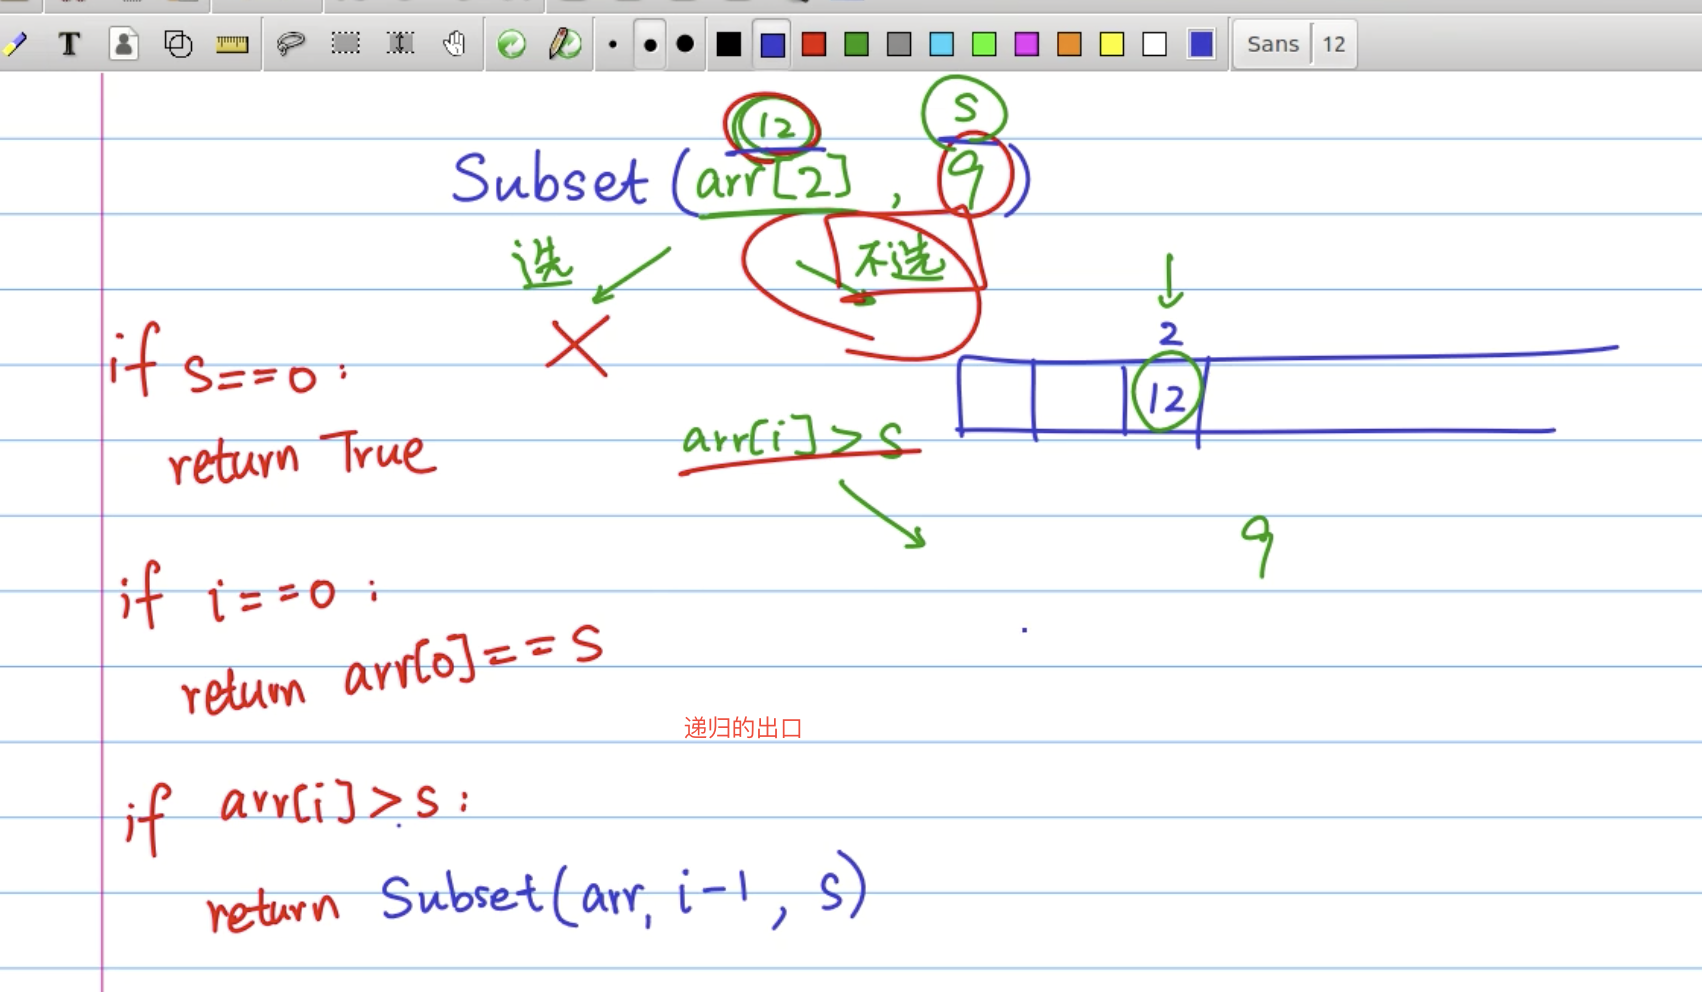 Sans 12
12 S
Subset (arr[2] , 9)
选 不选
2
12
if S==0 :
return True
arr[i] > S
9
if i==0 :
return arr[0]==S
递归的出口
if arr[i]>S :
return Subset(arr, i-1, S)